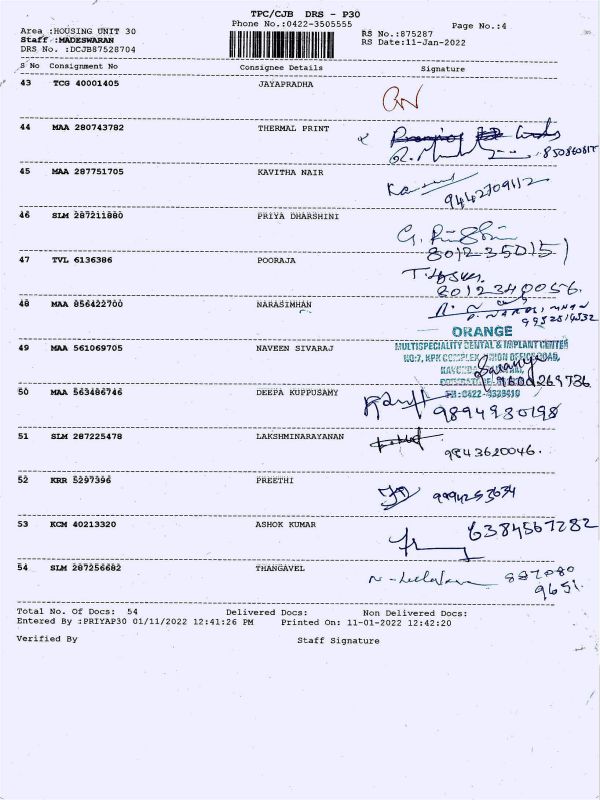 TPC/CJB DRS - P30
Phone No.:0422-3505555
Page No.:4
Area :HOUSING UNIT 30
RS No.:875287
Staff :MADESWARAN
RS Date:11-Jan-2022
DRS No. :DCJB87528704
S No Consignment No Consignee Details Signature
43 TCG 40001405 JAYAPRADHA
44 MAA 280743782 THERMAL PRINT
45 MAA 287751705 KAVITHA NAIR
9442709112
46 SLM 287211880 PRIYA DHARSHINI
8012350151
47 TVL 6136386 POORAJA
8012340056.
48 MAA 856422700 NARASIMHAN
9952514532
ORANGE
MULTISPECIALITY DENTAL & IMPLANT CENTER
49 MAA 561069705 NAVEEN SIVARAJ
NO:7, HPK COMPLEX, UNION OFFICE ROAD,
9600269736
50 MAA 563486746 DEEPA KUPPUSAMY
9894930198
51 SLM 287225478 LAKSHMINARAYANAN
9943620046.
52 KRR 5297396 PREETHI
9994253634
53 KCM 40213320 ASHOK KUMAR
6384567282
54 SLM 287256682 THANGAVEL
9651
Total No. Of Docs: 54 Delivered Docs: Non Delivered Docs:
Entered By :PRIYAP30 01/11/2022 12:41:26 PM Printed On: 11-01-2022 12:42:20
Verified By Staff Signature